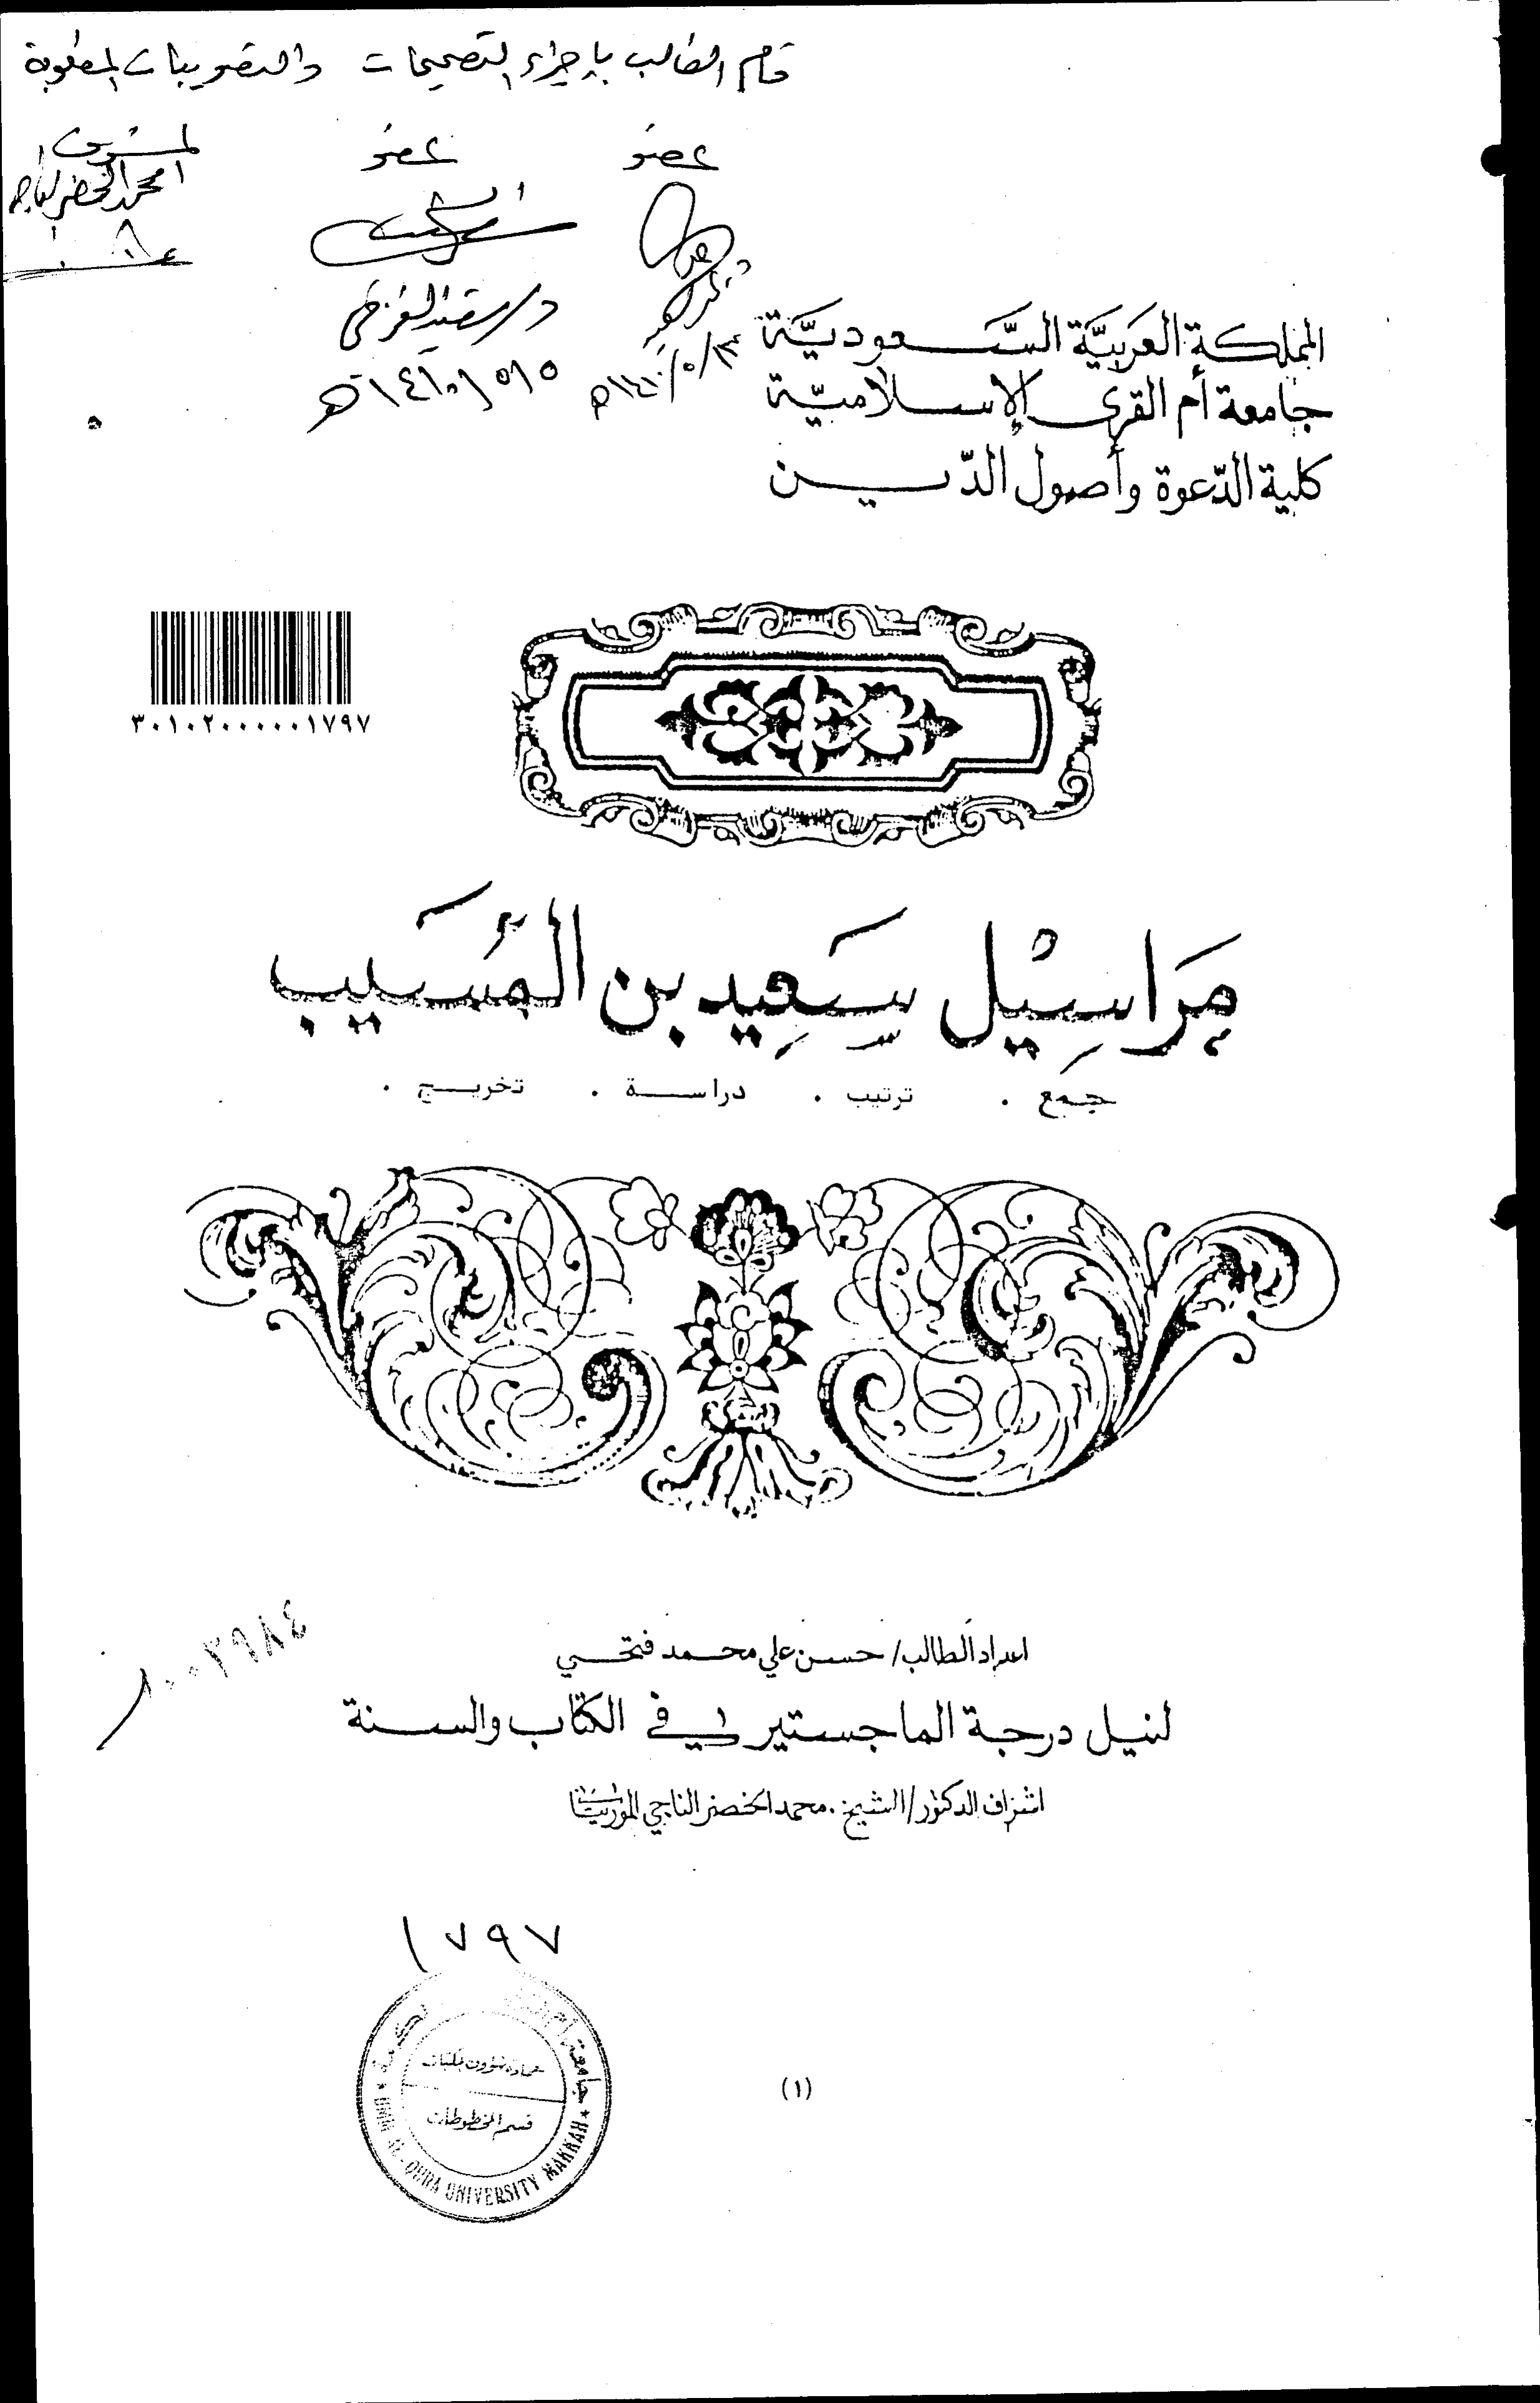 قام الطالب بإجراء التصحيحات والتصويبات المطلوبة
عضو عضو المشرف
محمد الخضر الناجي
د/ سعيد
١٤١٠/٥/٥هـ
المملكة العَربيَّة السَّعوديَّة
جامعة أم القرى الإسلاميّة
كلية الدّعوة وأصول الدّين
٣٠١٠٢٠٠٠٠٠١٧٩٧
مَراسِيْل سَعِيد بن المُسَيب
جمع . ترتيب . دراسة . تخريج .
اعداد الطالب/ حسن علي محمد فتحي
لنيل درجة الماجستير في الكتاب والسنة
اشراف الدكتور/ الشيخ. محمد الخضر الناجي
١٠٠٣٩٨٤
١٧٩٧
جامعة أم
عمادة شؤون المكتبات
قسم المخطوطات
UMM AL-QURA UNIVERSITY MAKKAH
(١)